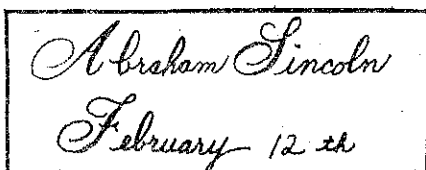 Abraham Lincoln
February 12 th